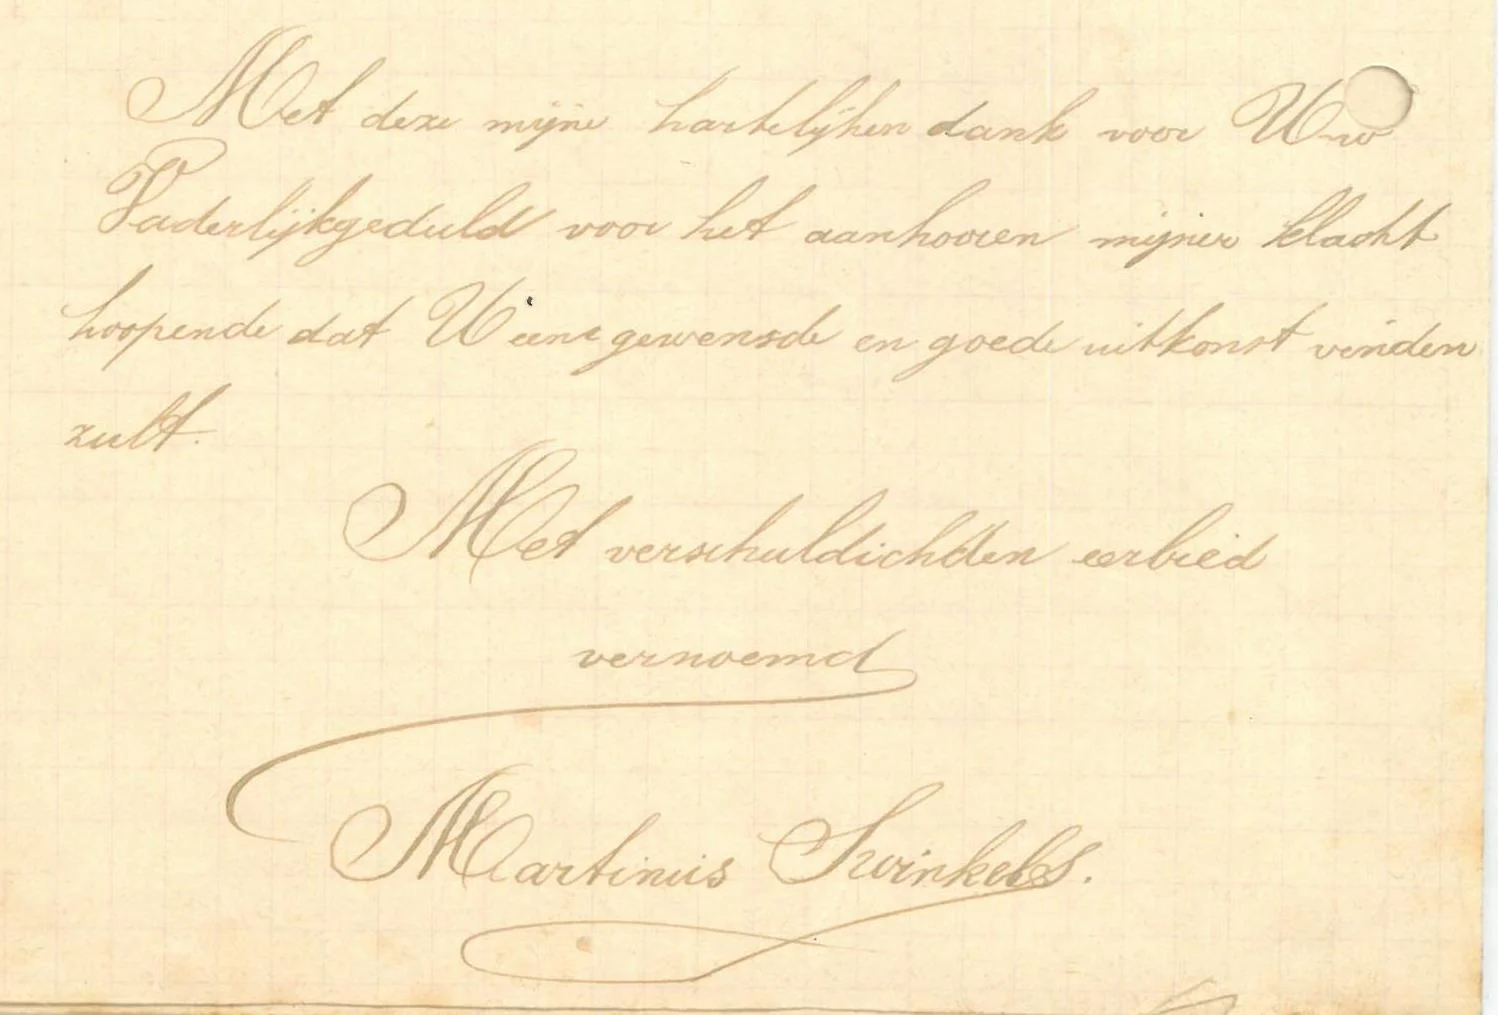 Met deze mijne hartelijken dank voor Uw
Vaderlijkgeduld voor het aanhooren mijner klacht
hoopende dat U eene gewensde en goede uitkonst vinden
zult.
Met verschuldichden eerbied
vernoemd
Martinus Swinkels.